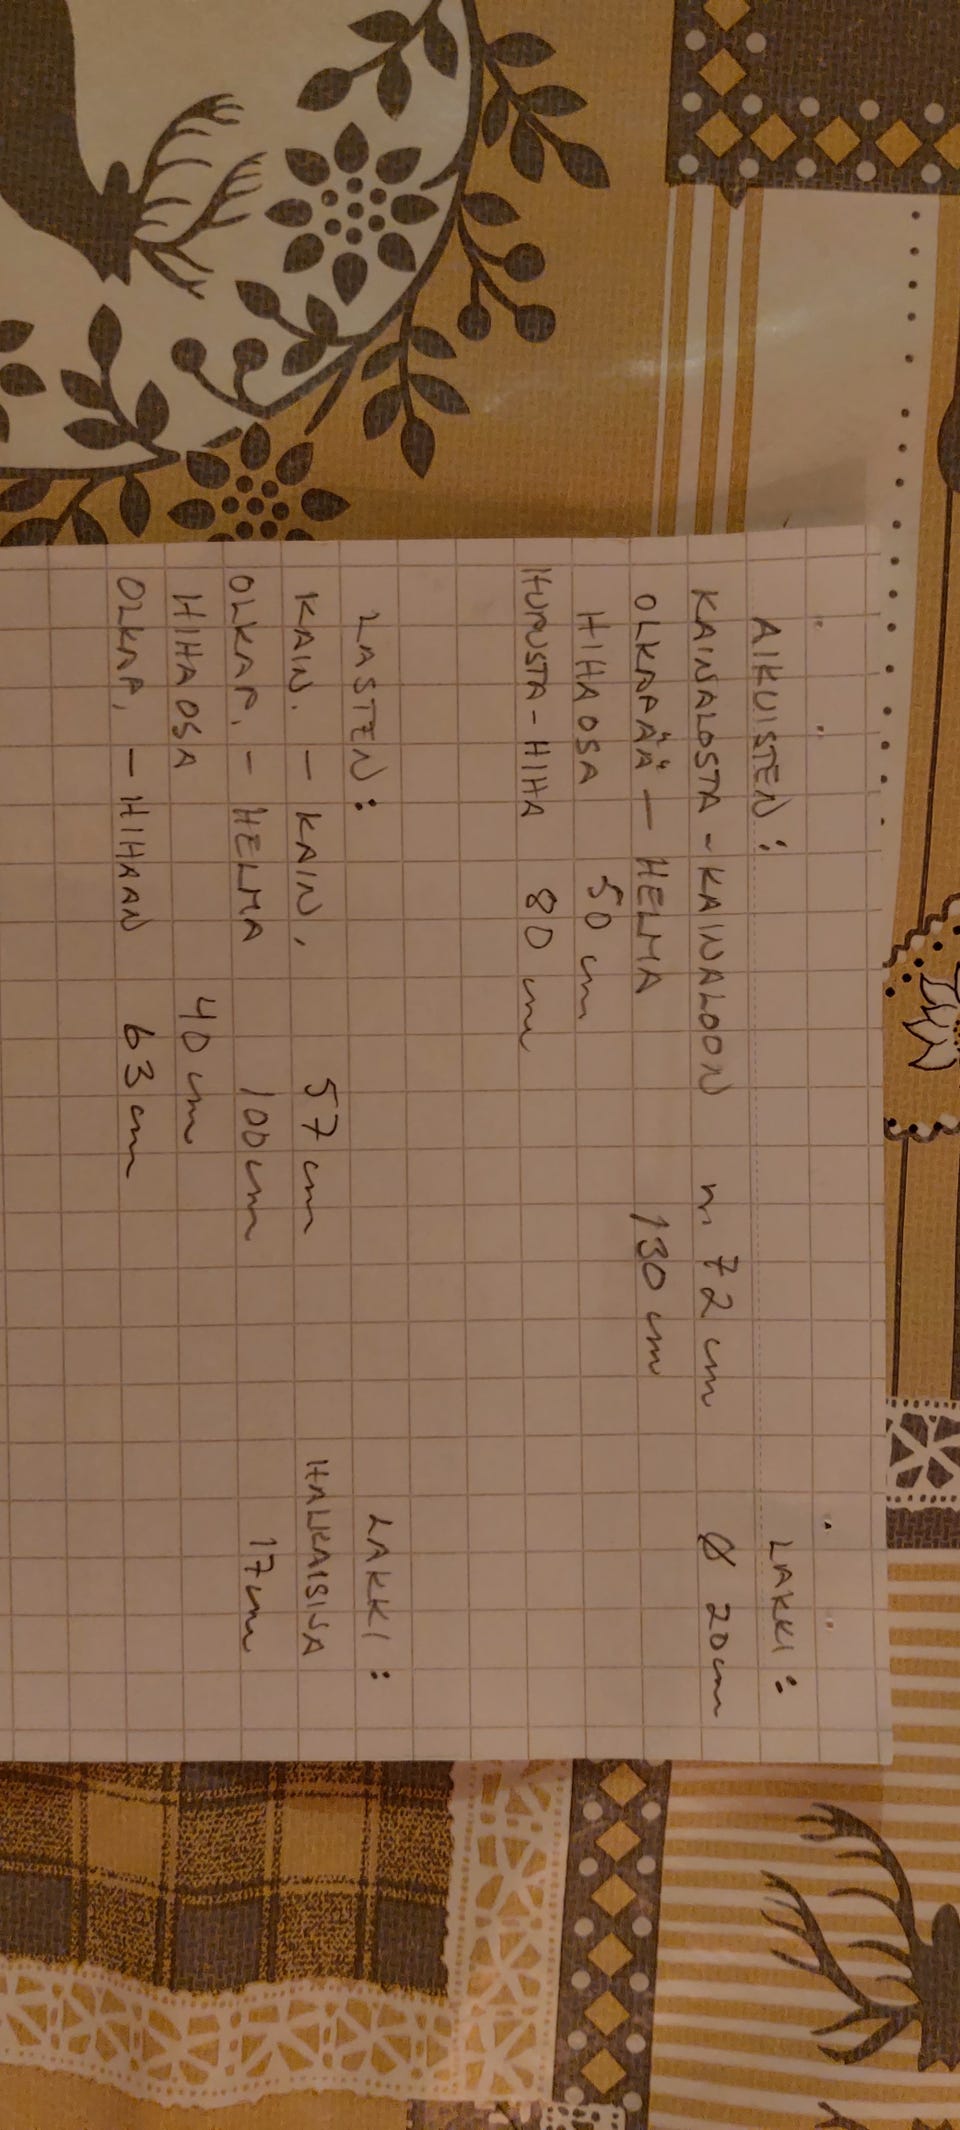 AIKUISTEN: LAKKI:
KAINALOSTA - KAINALOON n. 72 cm Ø 20cm
OLKAPÄÄ - HELMA 130 cm
HIHAOSA 50 cm
HUPUSTA - HIHA 80 cm
LASTEN: LAKKI:
KAIN. - KAIN. 57 cm HALKAISIJA
OLKAP. - HELMA 100cm 17cm
HIHAOSA 40 cm
OLKAP. - HIHAAN 63 cm